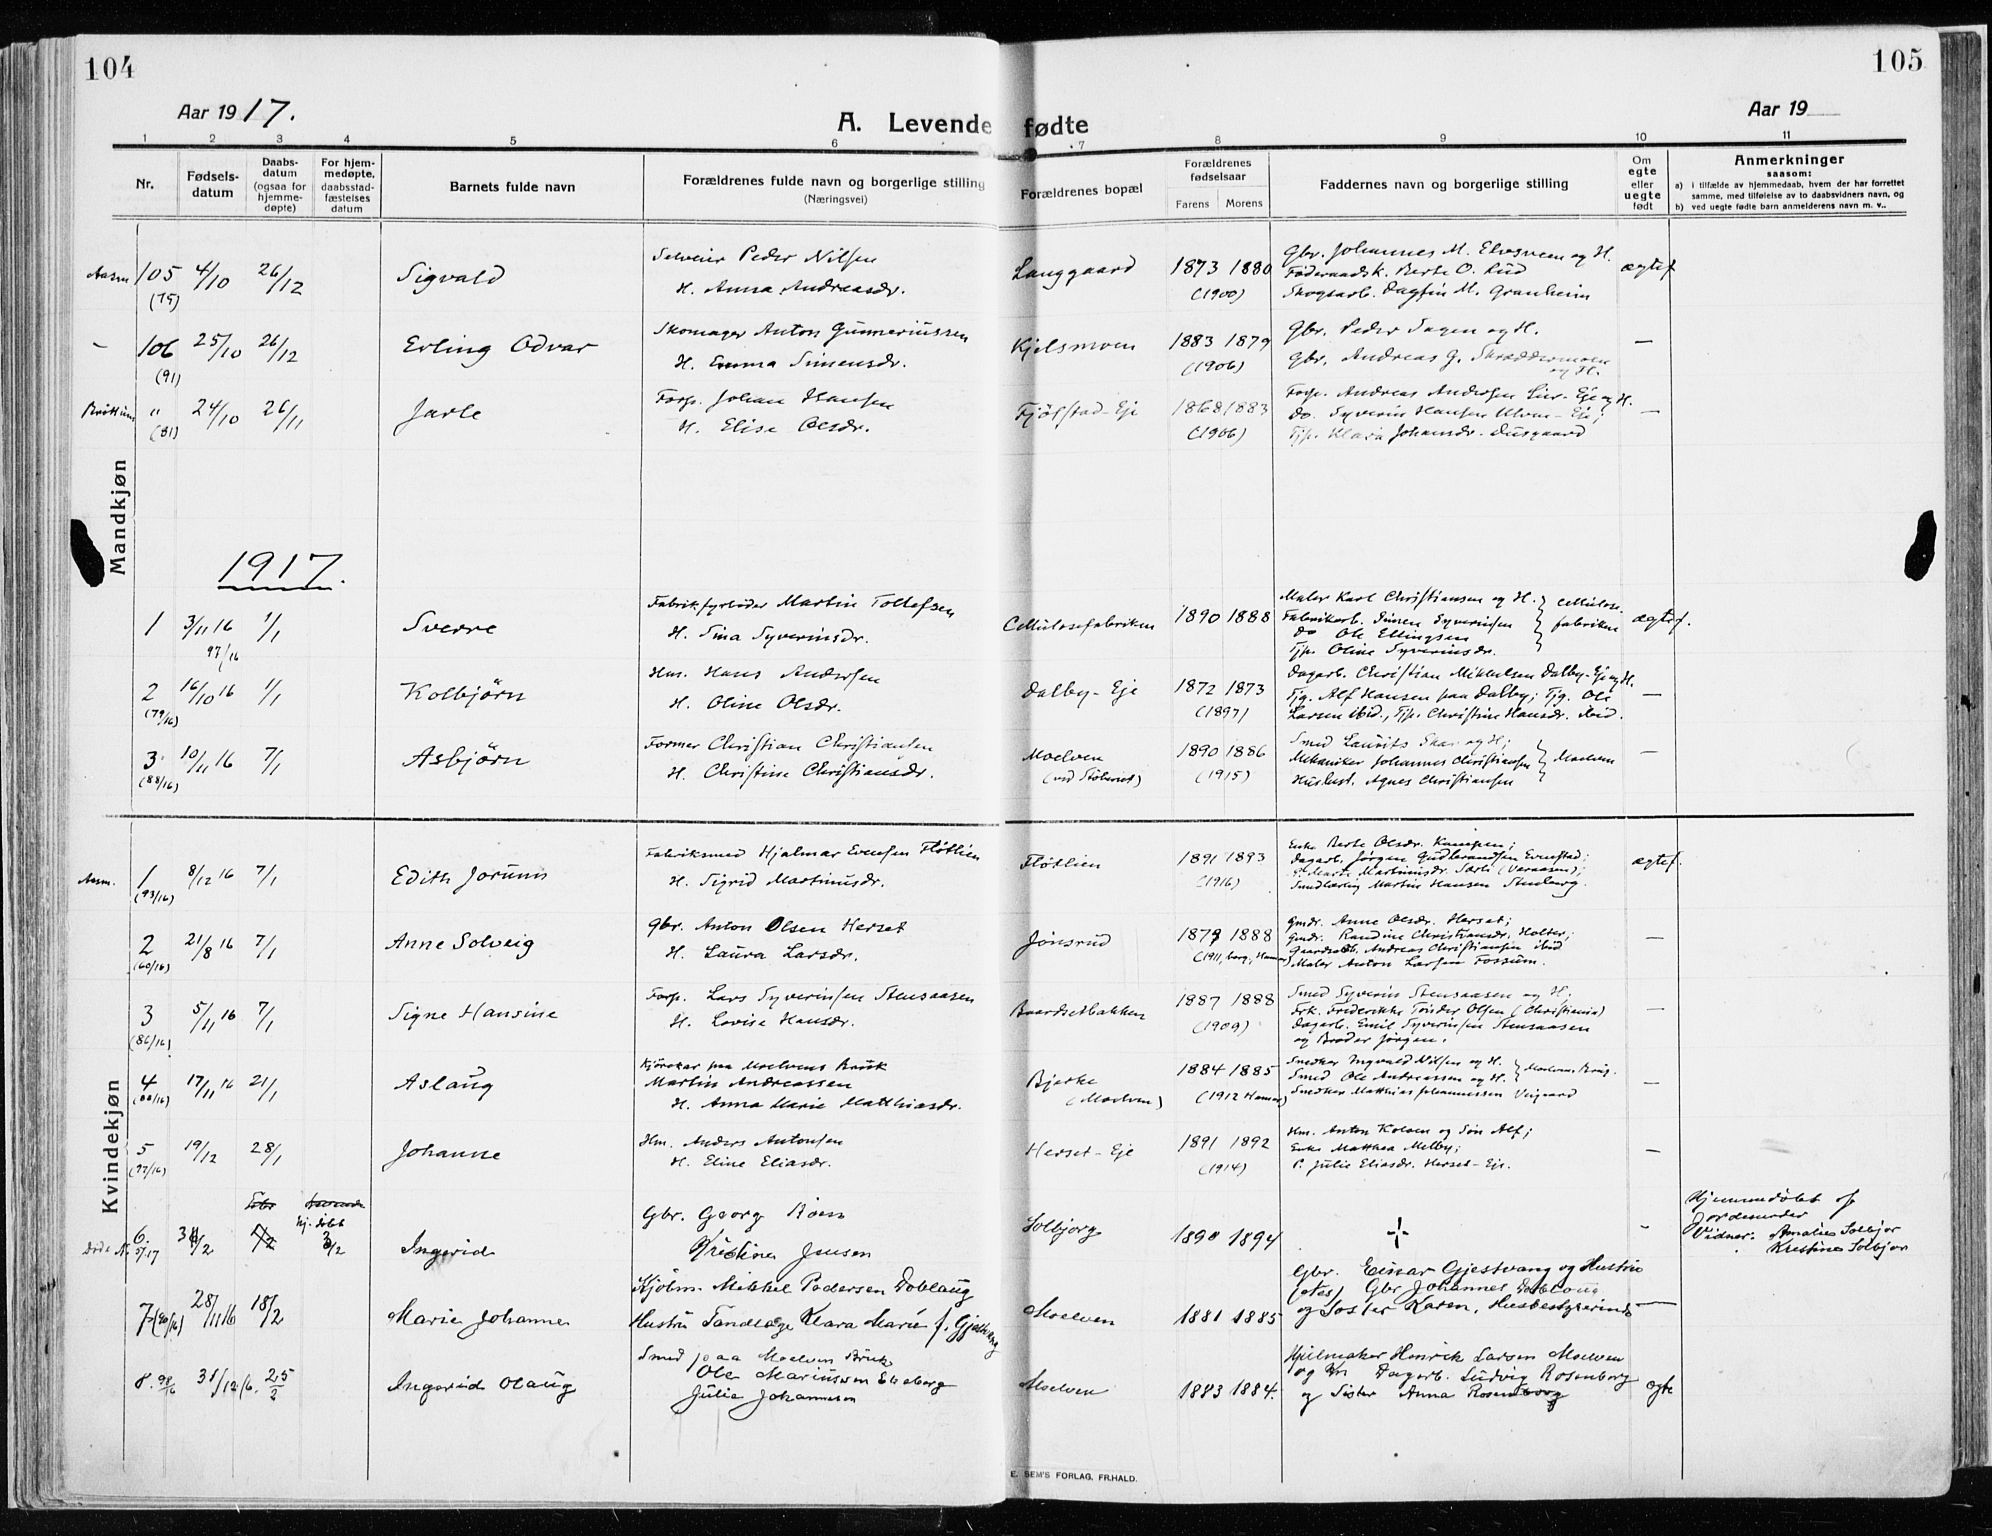 104
105
Aar 1917.
A. Levende fødte
Aar 19
1 2 3 4 5 6 7 8 9 10 11
Nr.
Fødsels-
datum
Daabs-
datum
(ogsaa for
hjemme-
døpte)
For hjem-
medøpte,
daabsstad-
fæstelses
datum
Barnets fulde navn
Forældrenes fulde navn og borgerlige stilling
(Næringsvei)
Forældrenes bopæl
Forældrenes
fødselsaar
Farens Morens
Faddernes navn og borgerlige stilling
Om
egte
eller
uegte
født
Anmerkninger
saasom:
a) i tilfælde av hjemmedaab, hvem der har forrettet
samme, med tilføielse av to daabsvidners navn, og
b) ved uegte fødte barn anmelderens navn m. v..
Mandkjøn
Aasm 105 4/10 26/12 Sigvald
(75)
Selveier Peder Nilsen
H. Anna Andreasdr.
Langgaard 1873 1880
(1900)
Gbr. Johannes M. Elvesveen og H.
Føderaadsk. Berte O. Lud
Skogsarb. Dagfin M. Granheim
ægtef
– 106 25/10 26/12 Erling Odvar
(91)
Skomager Anton Gunneriussen
H. Emma Simensdr.
Kjelsmoen 1883 1879
(1906)
Gbr. Peder Sagen og H.
Gbr. Andreas G. Skræddermoen
og H.
—
" 24/10 26/11 Jarle
(81)
Forp. Johan Hansen
H. Elise Olsdr.
Fjølstad-Eje 1868 1883
(1906)
Forp. Andreas Andersen Lier-Eje og H.
Do. Syverin Hansen Ulven-Eje;
Tjp. Klara Johansdr. Dusgaard
—
1917.
1 3/11 16 1/1 Sverre
97/16
Fabrikfyrbøder Martin Tollefsen
H. Sina Syverinsdr.
Cellulosefabriken 1890 1888
Maler Karl Christiansen og H.
Fabrikarb. Simen Syverinsen
Do Ole Ellingsen
Tjp. Oline Syverinsdr.
cellulose-
fabriken
ægtef.
2 16/10 16 1/1 Kolbjørn
(79/16)
Hm. Hans Andersen
H. Oline Olsdr.
Dalby-Eje 1872 1873
(1897)
Dagarb. Christian Mikkelsen Dalby-Eje og H.
Tjg. Alf Hansen paa Dalby; Tjg. Ole
Larsen ibid., Tjp. Christine Hansdr. ibid.
—
3 10/11 16 7/1 Asbjørn
(88/16)
Former Christian Christiansen
H. Christine Christiansdr.
Moelven 1890 1886
(ved Støberiet) (1915)
Smed Laurits Skar og H;
Mekaniker Johannes Christiansen
Huslust. Agnes Christiansen
Moelven
—
Kvindekjøn
Aasm. 1 8/12 16 7/1 Edith Jorunn
(93/16)
Fabriksmed Hjalmar Evensen Fløtlien
H. Sigrid Martinusdr.
Fløtlien 1891 1893
(1916)
Enke Berte Olsdr. Kampen;
Dagarb. Jørgen Gudbrandsen Evenstad;
P. Marti Martinusdr. Sørli (Veraasen);
Smedlærling Martin Hansen Stenberg.
ægtef.
2 21/8 16 7/1 Anne Solveig
(60/16)
Gbr. Anton Olsen Herset
H. Laura Larsdr.
Jønsrud 1879 1888
(1911, borg. Hamar)
Gmdr. Anne Olsdr. Herset;
Gmdr. Randine Christiansdr. Holter;
Gaardsarb. Andreas Christiansen ibid
Maler Anton Larsen Fossum.
—
3 5/11 16 7/1 Signe Hansine
(86/16)
Forp. Lars Syverinsen Stensaasen
H. Lovise Hansdr.
Baardsetbakken 1887 1888
(1909)
Smed Syverin Stensaasen og H;
Frk. Frederikke Tønder Olsen (Christiania)
Dagarb. Emil Syverinsen Stensaasen
og Broder Jørgen.
—
4 17/11 16 21/1 Aslaug
Kjørekar paa Moelvens Bruk
Martin Andreassen
H. Anna Marie Matthiasdr.
Bjerke 1884 1885
(Moelven) (1912 Hamar)
Snedker Ingvald Nilsen og H.
Smed Ole Andreassen og H.
Snedker Matthias Johannessen Veigaard
Moelvens Brug.
—
5 19/12 28/1 Johanne
(97/16)
Hm. Anders Antonsen
H. Eline Eliasdr.
Herset-Eje 1891 1892
(1914)
Hm. Anton Kolsen og Søn Alf;
Enke Matthea Melby;
P. Julie Eliasdr. Herset-Eje.
—
hj. døbt
6. 3/2 Ingerid
Døde N. 5/17
Gbr. Georg Boen
Kristine Jensen
Solbjorg 1890 1894
-
Hjemmedøbt af
Jordemoder
Vidner: Amalie Solbjor
Kristine Solbjor
7 (90/16) 28/11 16 18/2 Marie Johanne
Kjøbm. Mikkel Pedersen Doblaug
Hustru Tandlæge Klara Marie f. Gjestvang
Moelven 1881 1885
Gbr. Einar Gjestvang og Hustru
Gbr Johannes Dobloug
og Søster Karen, Husbestyrerinde
—
8. 98/16 31/12 16. 25/2 Ingerid Olaug
Smed paa Moelven Bruk
Ole Mariussen Eneberg
Julie Johannesen
Moelven 1883 1884.
Hjulmaker Henrik Larsen Moelven
og Dagarb. Ludvig Rosenborg
og Søster Anna Rosenborg
egte
E. SEM'S FORLAG, FR.HALD.